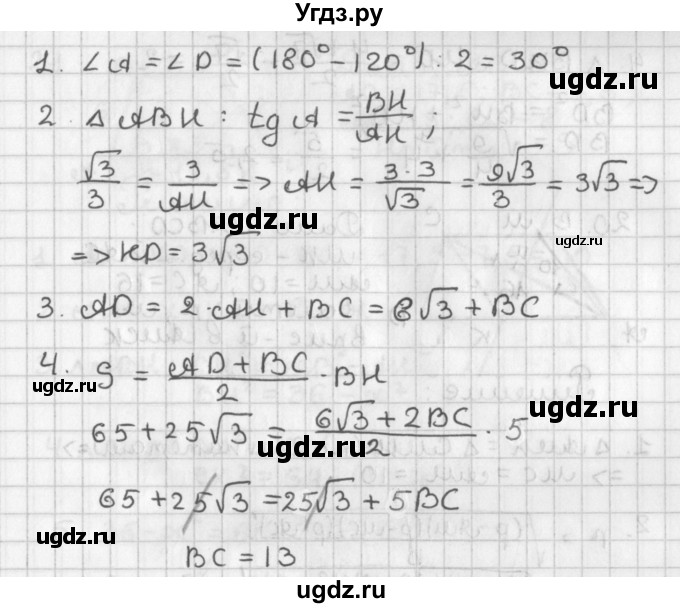 Угдз.ру
1. ∠A = ∠D = (180° − 120°) : 2 = 30°
gdz.ru
2. △ABH : tg A = BH/AH ;
√3/3 = 3/AH => AH = 3·3/√3 = 9√3/3 = 3√3 =>
ugdz.ru
ugdz.ru
ugdz.ru
=> KD = 3√3
3. AD = 2·AH + BC = 6√3 + BC
ugdz.ru
4. S = AD + BC/2 · BH
ugdz.ru
65 + 25√3 = 6√3 + 2BC/2 · 5
ugdz.ru
65 + 25√3 = 25√3 + 5BC
ugdz.ru
BC = 13
ugdz.ru
ugdz.ru
ugdz.ru